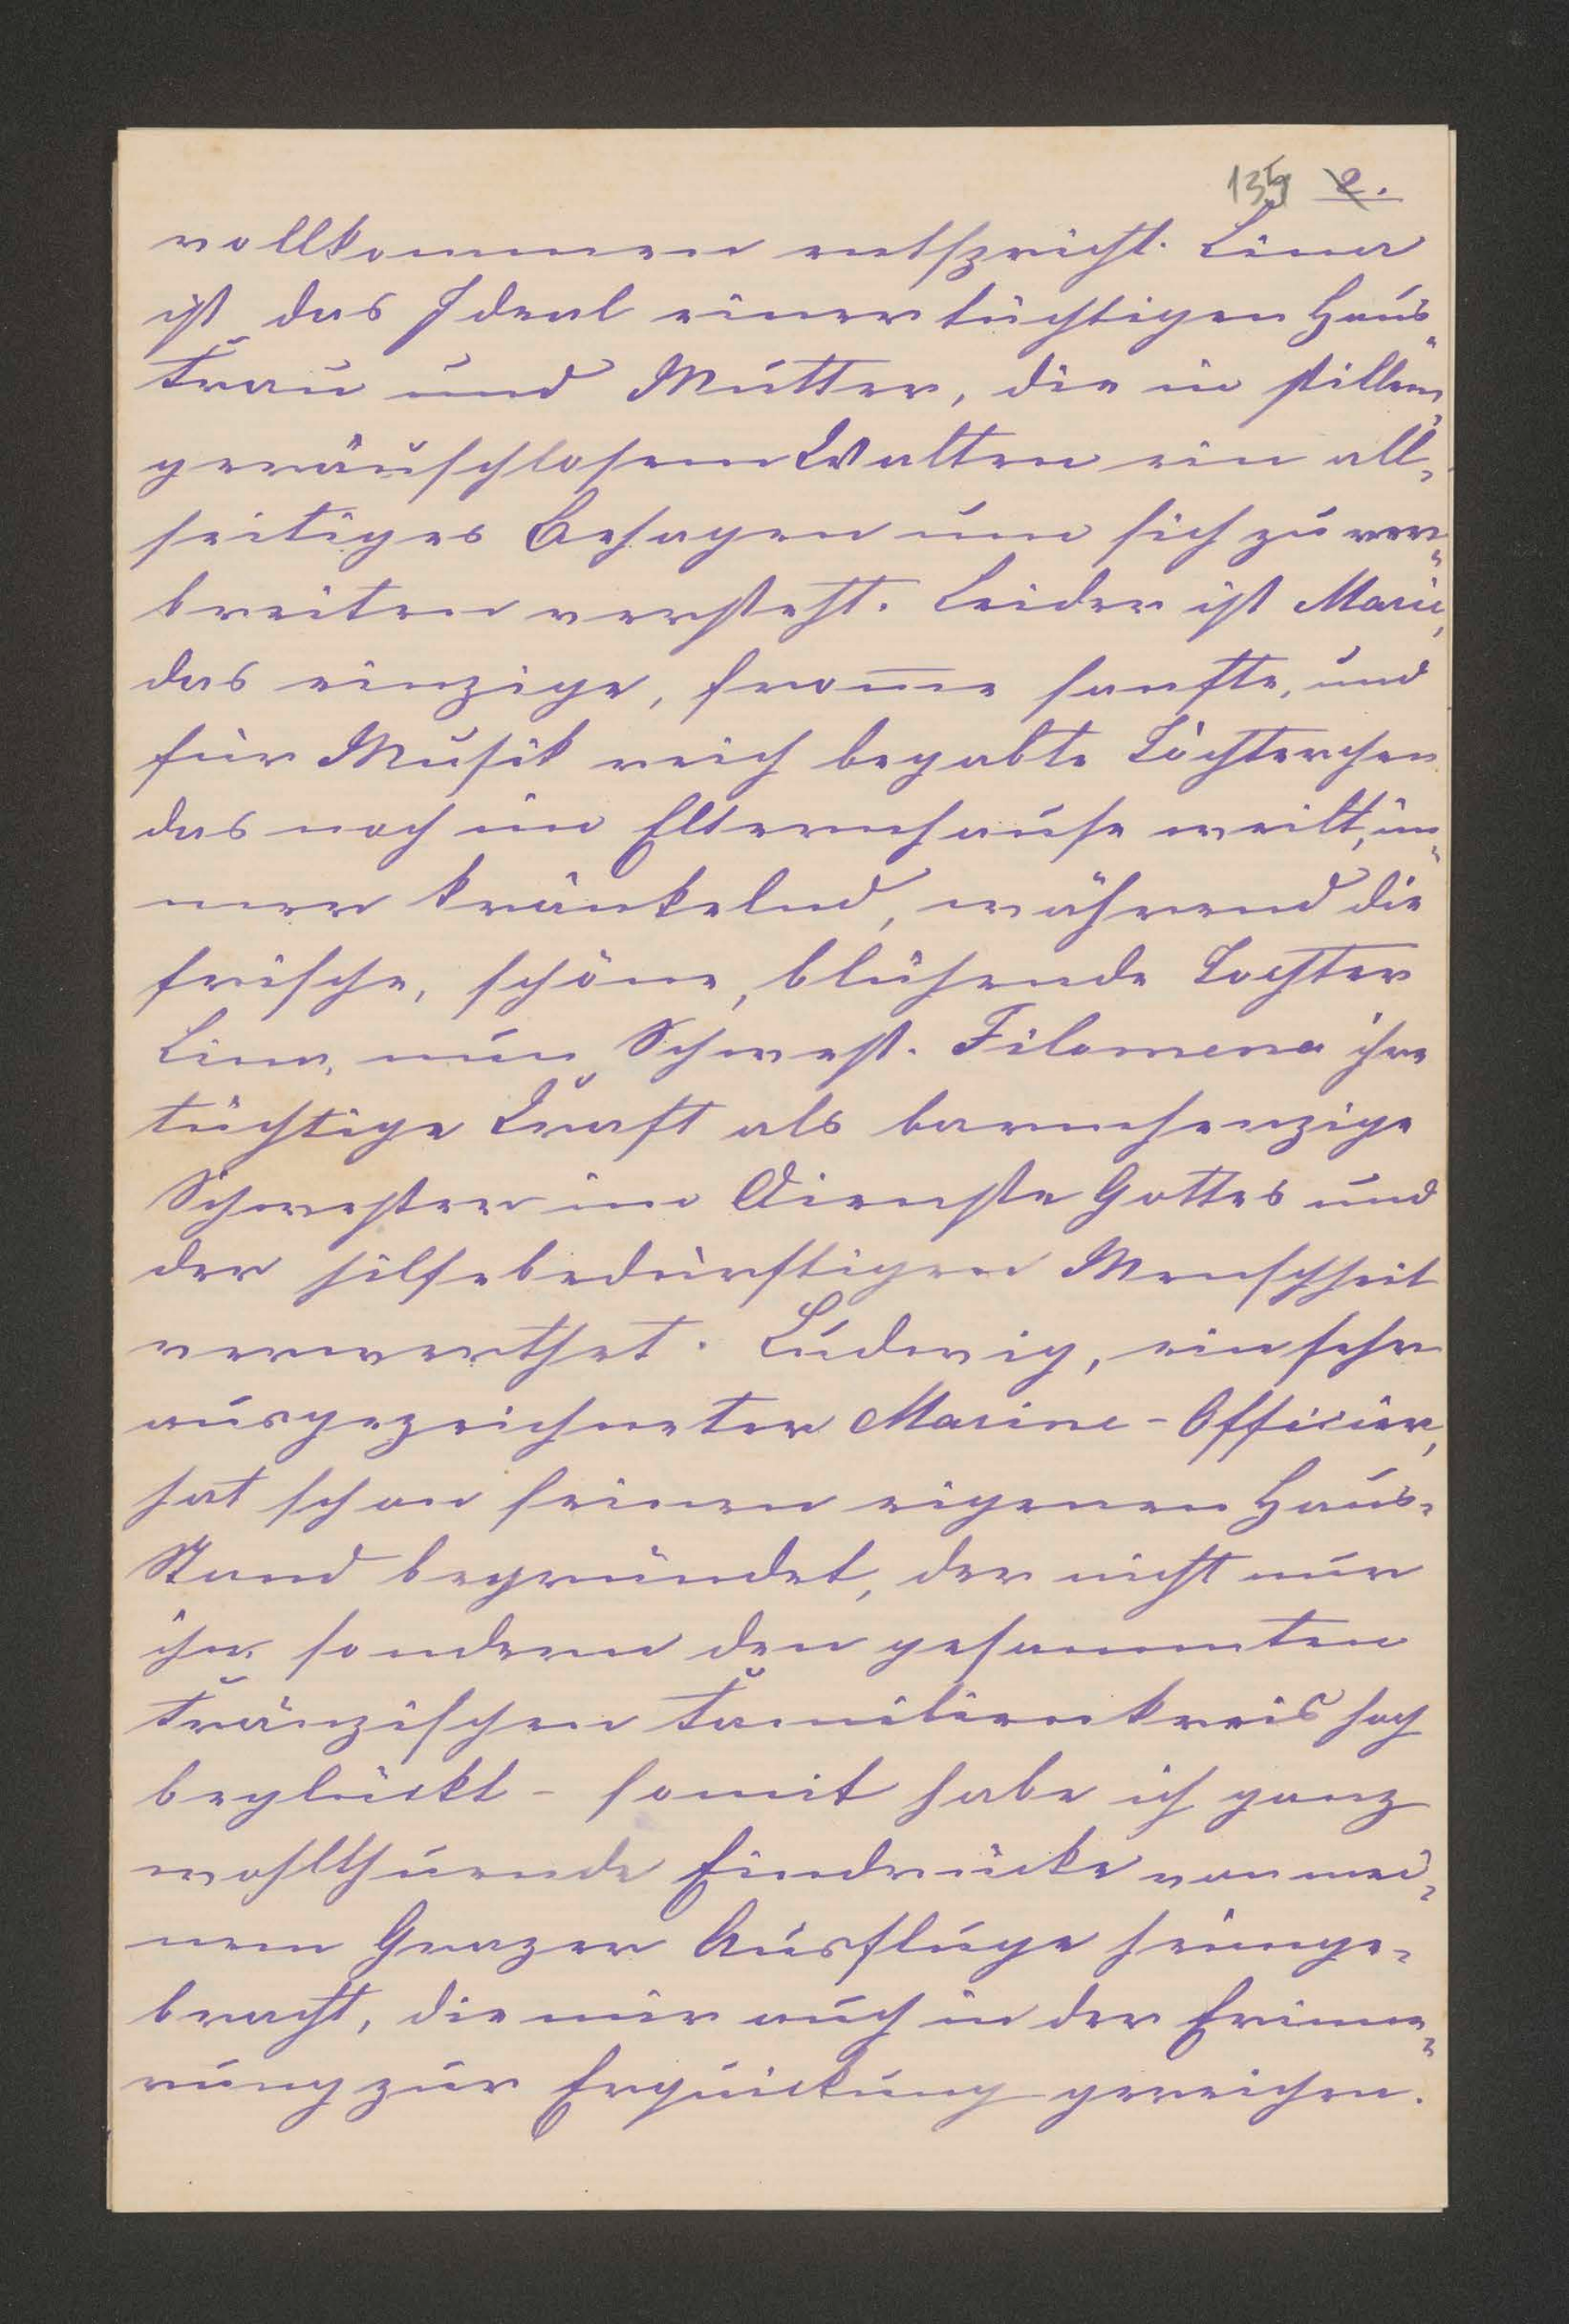 135 2.
vollkommen entspricht. Lina
ist das Ideal einer tüchtigen Haus„
frau und Mutter, die in stillem,
geräuschlosem Walten ein all„
seitiges Behagen um sich zu ver„
breiten versteht. Leider ist Marie,
das einzige, from̅e sanfte, und
für Musik reich begabte Töchterchen
das noch im Elternhause weilt, im„
mer kränkelnd, während die
frische, schöne, blühende Tochter
Lina, nun Schwest. Filomena ihre
tüchtige Kraft als barmherzige
Schwester im Dienste Gottes und
der hilfebedürftigen Menschheit
verwerthet. Ludwig, ein sehr
ausgezeichneter Marine-Officier,
hat schon seinen eigenen Haus„
Stand begründet, der nicht nur
ihn, sondern den gesammten
Fränzischen Familienkreis hoch
beglückt – somit habe ich ganz
wohlthuende Eindrücke von mei„
nem Grazer Ausfluge heimge„
bracht, die mir auch in der Erinne„
rung zur Erquickung gereichen.